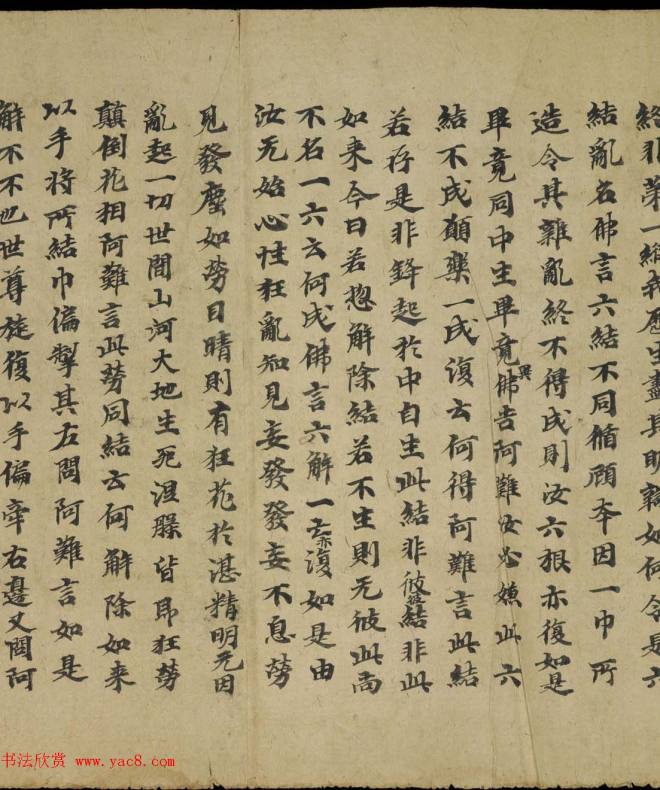 終非第一縮我歷生盡其明𥡴如何令是六
結亂名佛言六結不同循顧本因一巾所
造令其雜亂終不得成則汝六根亦復如是
畢竟同中生畢竟異佛告阿難汝必嫌此六
結不成願樂一成復云何得阿難言此結
若存是非鋒起於中自生此結非彼彼結非此
如来今日若惣解除結若不生則无彼此尚
不名一六云何成佛言六解一亡亦復如是由
汝无始心性狂亂知見妄發發妄不息勞
見發塵如勞目睛則有狂花於湛精明无因
亂起一切世間山河大地生死涅槃皆即狂勞
顛倒花相阿難言此勞同結云何解除如来
以手將所結巾偏掣其左問阿難言如是
解不不也世尊旋復以手偏牽右邊又問阿
书法欣赏 www.yac8.com